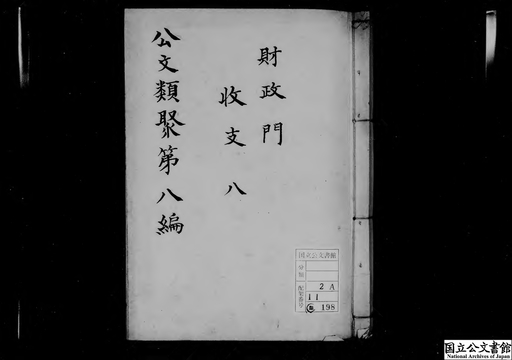 財政門
收支八
公文類聚第八編
国立公文書館
分類
配架番号
2 A
11
198
国立公文書館
National Archives of Japan